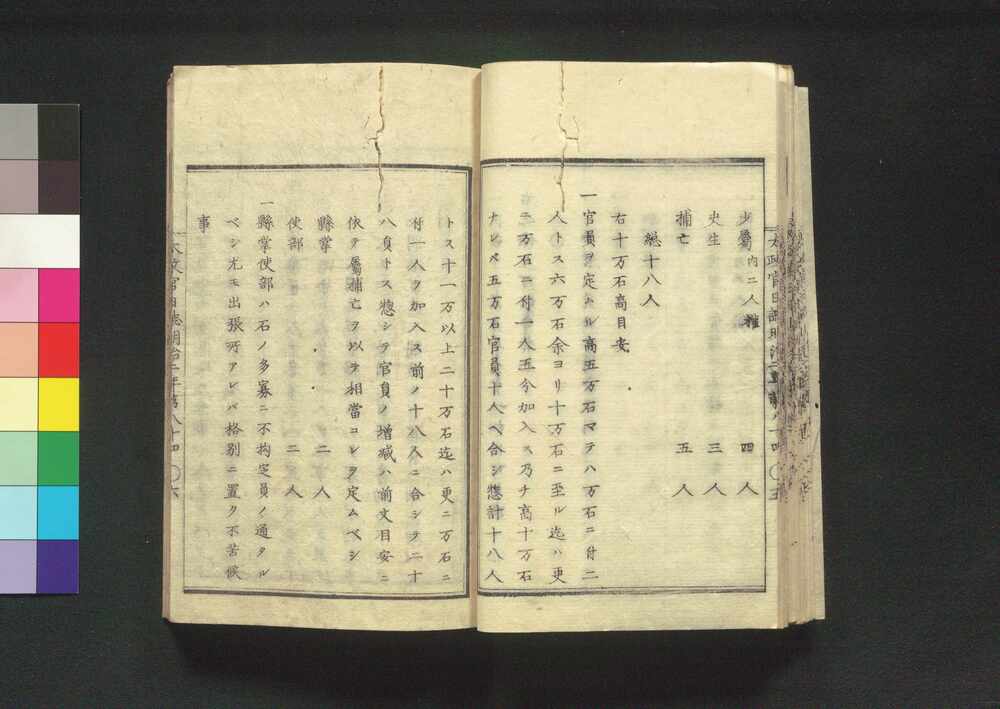 少屬 内二人權 四人
史生 三人
捕亡 五人
総十八人
右十万石高目安
一官員ヲ定ムル高五万石マテハ万石ニ付二
人トス六万石余ヨリ十万石ニ至ル迄ハ更
ニ万石ニ付一人五分加入ス乃チ高十万石
ナレハ五万石官員十人ヘ合シ惣計十八人
トス十一万以上二十万石迄ハ更ニ万石ニ
付一人ヲ加入ス前ノ十八人ニ合シテ二十
八員トス惣シテ官員ノ増减ハ前文目安ニ
依テ屬捕亡ヲ以テ相當コレヲ定ムベシ
縣掌 二人
使部 二人
一縣掌使部ハ石ノ多寡ニ不拘定員ノ通タル
ベシ尤モ出張所アレバ格別ニ置ク不苦候
事
太政官日誌明治二年第八十四 〇五
太政官日誌明治二年第八十四 〇六